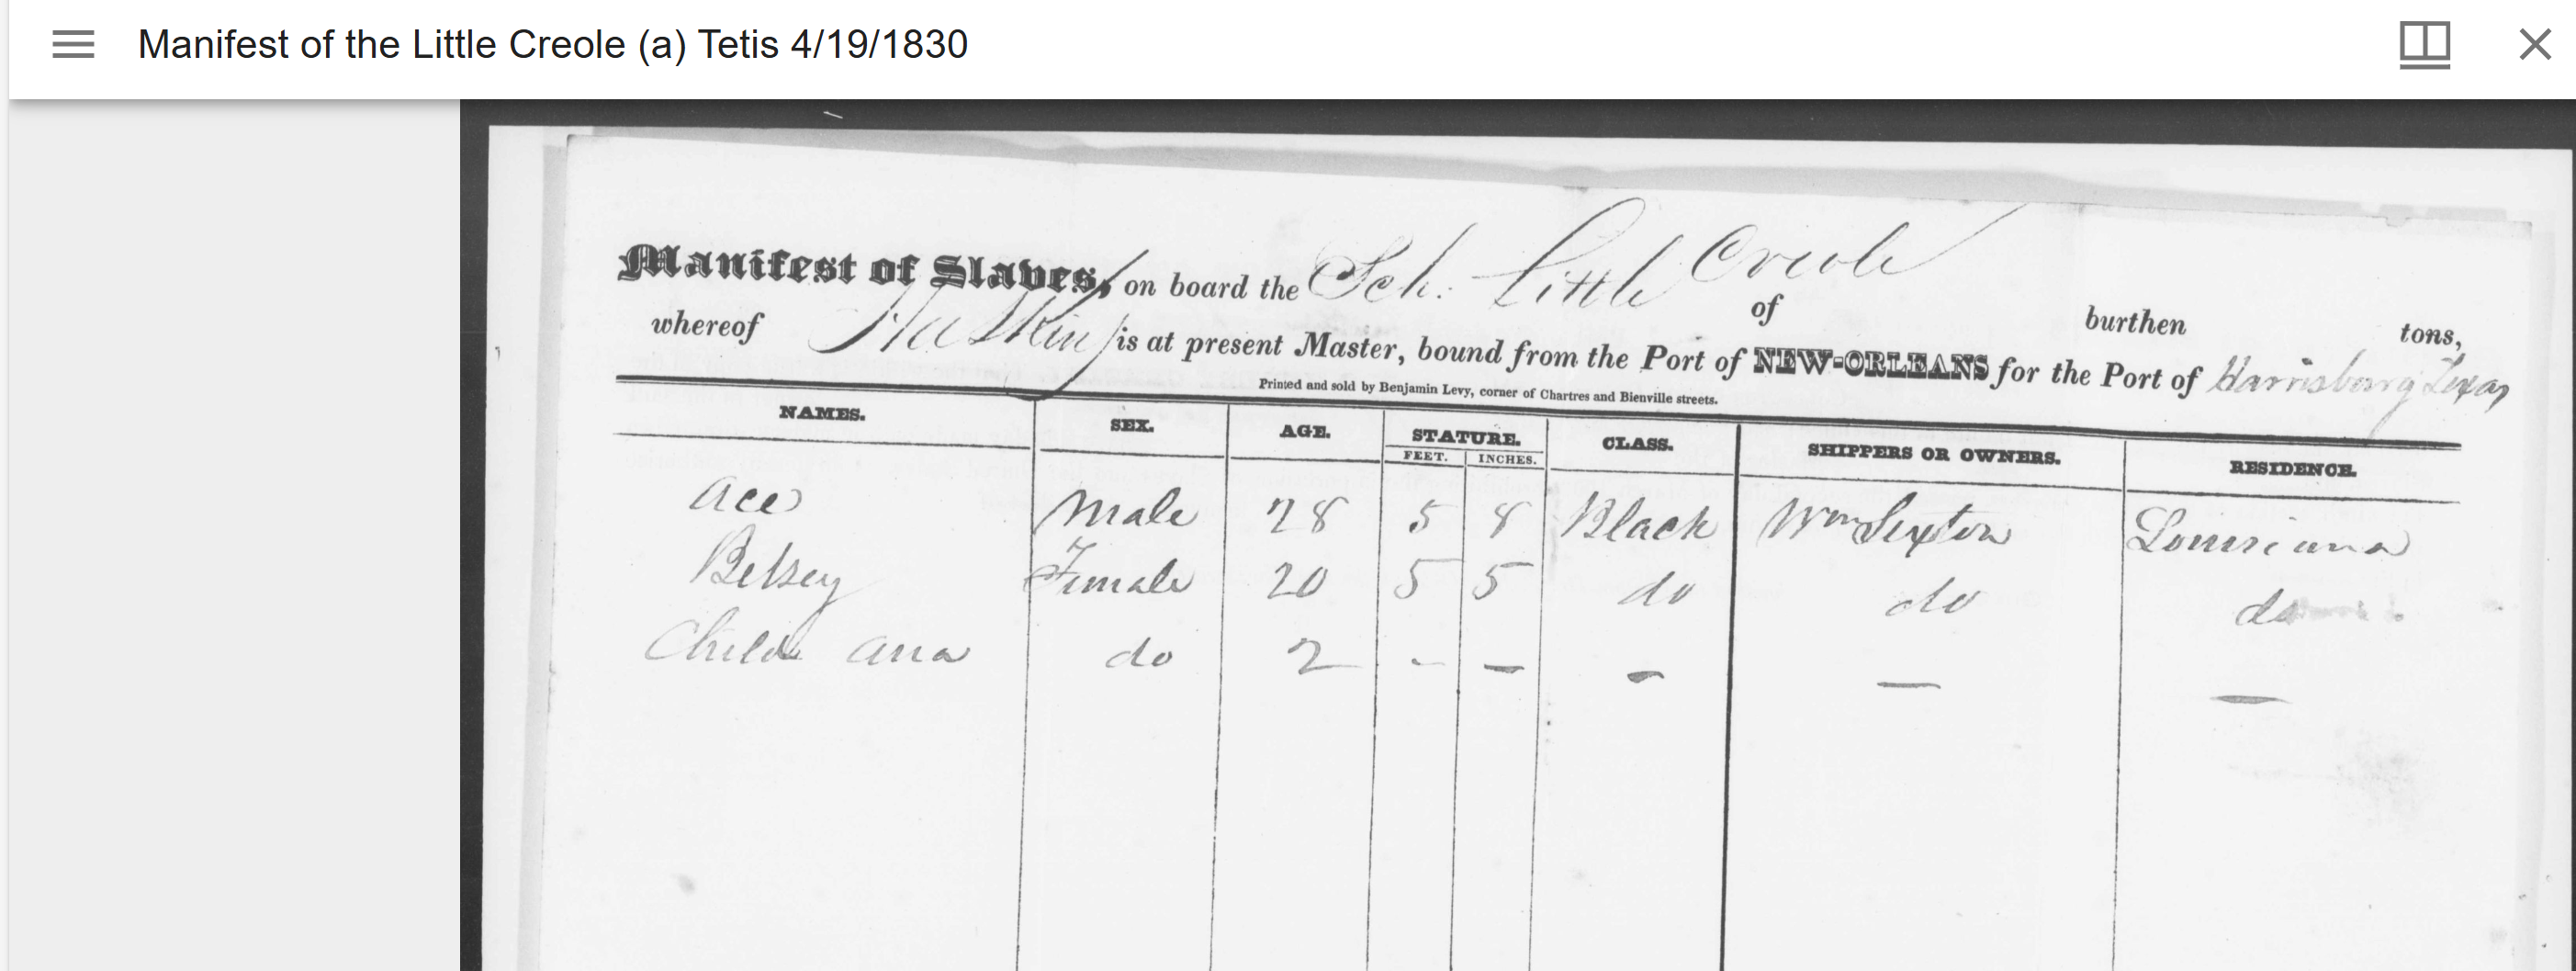 Manifest of the Little Creole (a) Tetis 4/19/1830
Manifest of Slaves, on board the Sch. Little Creole of burthen tons,
whereof Haskins is at present Master, bound from the Port of NEW-ORLEANS for the Port of Harrisburg Texas
Printed and sold by Benjamin Levy, corner of Chartres and Bienville streets.
NAMES. SEX. AGE. STATURE. CLASS. SHIPPERS OR OWNERS. RESIDENCE.
FEET. INCHES.
Male 28 5 8 Black Wm Sexton Louisiana
Betsey Female 20 5 5 do do do
Child Ana do 2 - - - - -